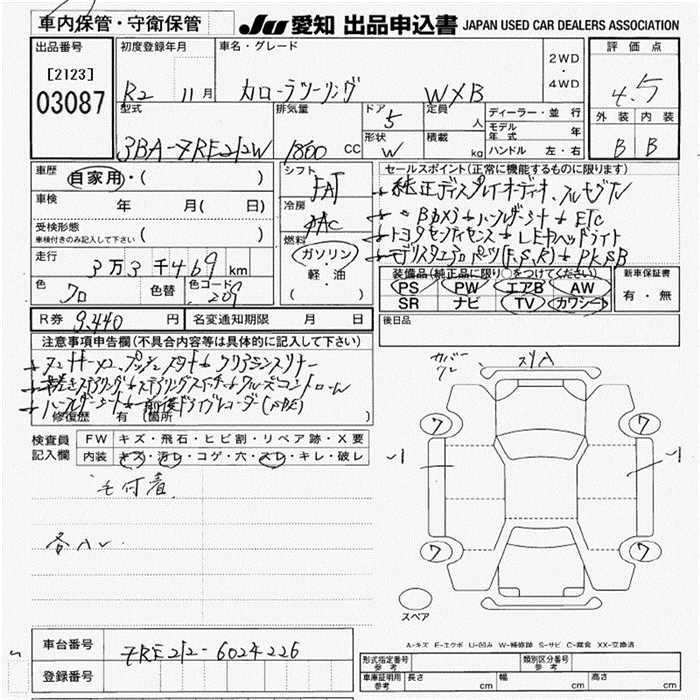 車内保管・守衛保管 JU 愛知 出品申込書 JAPAN USED CAR DEALERS ASSOCIATION
出品番号 初度登録年月 車名・グレード 2WD・4WD 評価点
[2123]
03087 R2 11月 カローラツーリング W×B 4.5
型式 排気量 ドア 5 定員 人 ディーラー・並行 外装 内装
3BA-ZRE212W 1800 CC 形状 W 積載 kg モデル年式 年 B B
ハンドル 左・右
車歴 自家用・( ) シフト FAT セールスポイント(正常に機能するものに限ります)
車検 年 月( 日) 冷房 AC 純正ディスプレイオーディオ、フルセグTV
受検形態 ( ) ハンドルヒーター ETC
車検付きのみ記入して下さい 燃料 トヨタセンフティセンス LEDヘッドライト
走行 3万3千469km ガソリン・軽油 モデリスタエアロパーツ(F,S,R) PKSB
( ) 装備品(純正品に限り○をつけてください) 新車保証書
色 クロ 色替 色コード 209 PS PW エアB AW 有・無
SR ナビ TV カワシート
R券 9,440円 名変通知期限 月 日 後日品
注意事項申告欄(不具合内容等は具体的に記入して下さい)
クルーズコントロール
前後ドライブレコーダー
修復歴 有(箇所 )
検査員 FW キズ・飛石・ヒビ割・リペア跡・X要
記入欄 内装 キズ・汚レ・コゲ・穴・スレ・キレ・破レ
毛付着
各ハレ
カバークレ スリA
7 7
-1 -1
7 7
スペア
A-キズ E-エクボ U-凹み W-補修跡 S-サビ C-腐食 XX-交換済
車台番号 ZRE212-6024226
登録番号
形式指定番号 参考 類別区分番号 参考
車庫証明用 参考 長さ cm 幅 cm 高さ cm